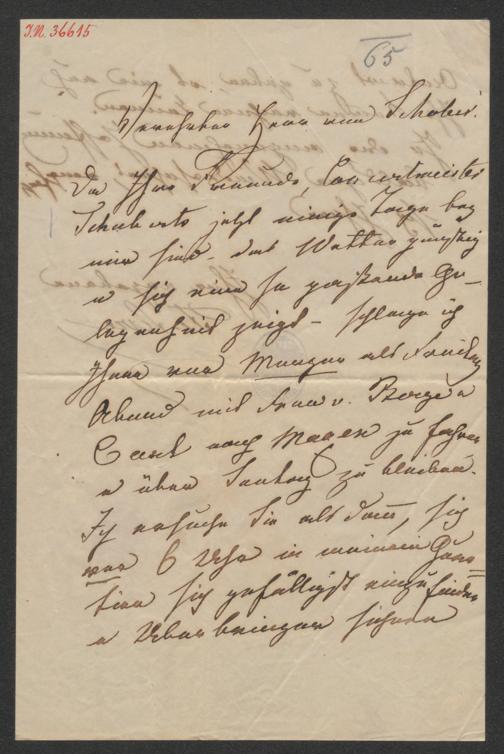 I.N. 36615
65
Verehrter Herr von Schober.
Da Ihre Freunde, Concertmeister
Schuberts jetzt einige Tage bey
mir sind – das Wetter günstig
u sich eine so passende Ge-
legenheit zeigt – schlage ich
Ihnen vor Morgen als Freitag
Abend mit Frau v.
nach Maxen zu fahren
u über Sontag zu bleiben.
Ich ersuche Sie als dann, sich
vor 6 Uhr in meinem Quar-
tier sich gefälligst einzufinden
u Ueberbringer